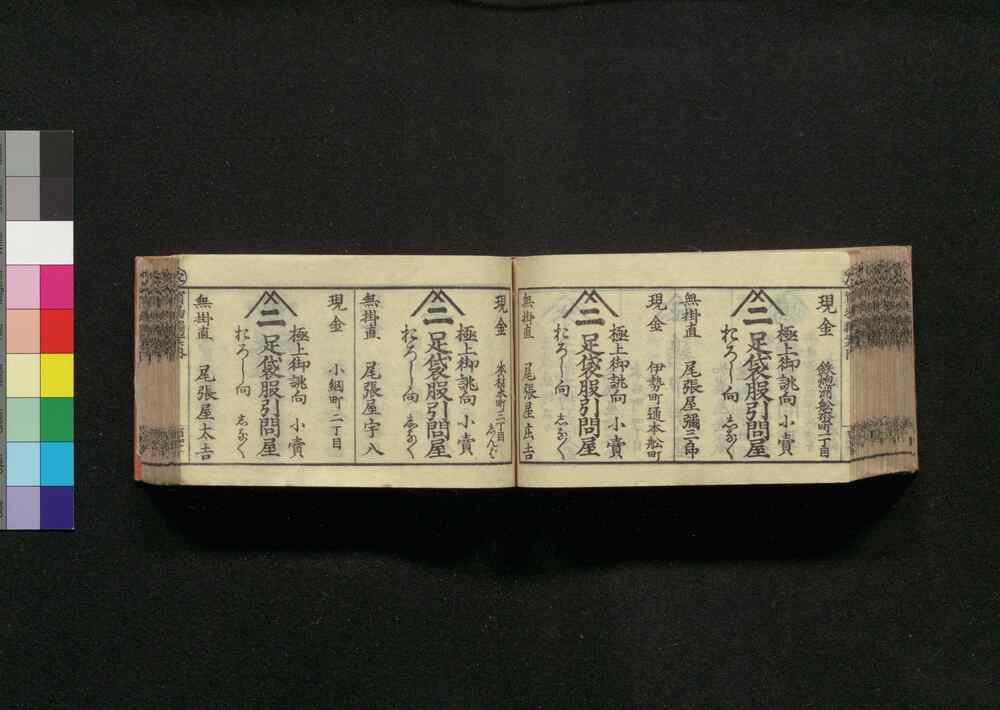 現金 鉄炮洲舩松町二丁目
極上御誂向 小賣
二 足袋服引問屋
おろし向 志なく
無掛直 尾張屋彌三郎
現金 伊勢町通本舩町
極上御誂向 小賣
二 足袋服引問屋
おろし向 志なく
無掛直 尾張屋庄吉
現金 本材木町二丁目
極上御誂向 小賣
二 足袋服引問屋
おろし向 志なく
無掛直 尾張屋宇八
現金 小網町二丁目
極上御誂向 小賣
二 足袋服引問屋
おろし向 志なく
無掛直 尾張屋太吉